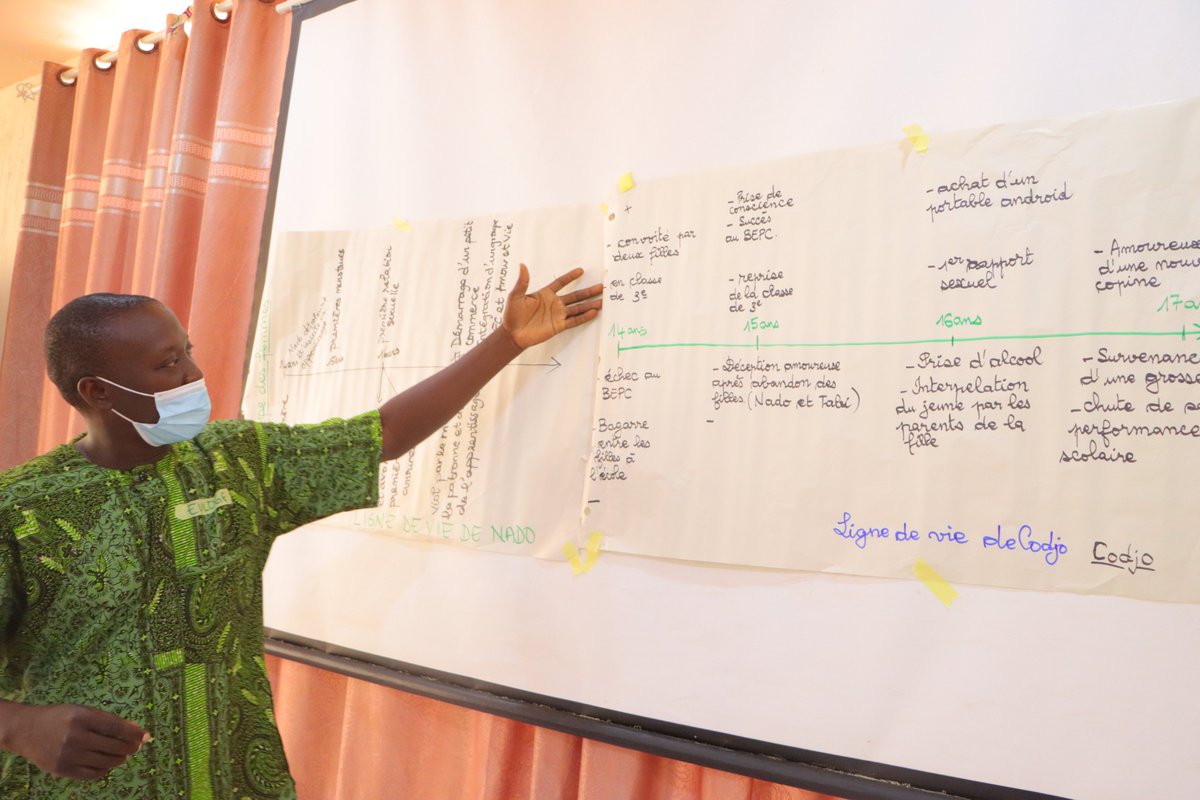 premières menstrues
première relation
sexuelle
Démarrage d'un petit
commerce
intégration d'un groupe
et Amour et Vie
de l'apprentissage
LIGNE DE VIE DE NADO
+
- convoité par
deux filles
en classe
de 3e
14 ans
- échec au
BEPC
- Bagarre
entre les
filles à
l'école
-
- Prise de
conscience
- Succès
au BEPC.
- reprise
de la classe
de 3e
15 ans
- Déception amoureuse
après abandon des
filles (Nado et Tabi)
-
- achat d'un
portable android
- 1er rapport
sexuel
16 ans
- Prise d'alcool
- Interpelation
du jeune par les
parents de la
fille
- Amoureux
d'une nouv
copine
17 a
- Survenanc
d'une grosse
- chute de
performance
scolaire
Ligne de vie de Codjo
Codjo